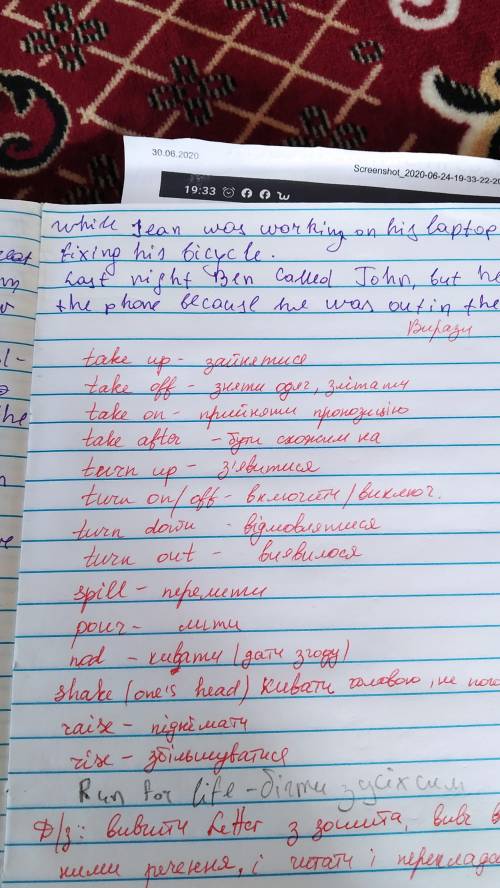 30.06.2020
Screenshot_2020-06-24-19-33-22-20
19:33
while Jean was working on his laptop
fixing his bicycle.
Last night Ben called John, but he
the phone because he was out in the
Вирази
take up - зайнятися
take off - зняти одяг, злітати
take on - прийняти пропозицію
take after - бути схожим на
turn up - з'явитися
turn on/off - включити/виключ.
turn down - відмовлятися
turn out - виявилося
spill - перелити
pour - лити
nod - кивати (дати згоду)
shake (one's head) кивати головою, не
raise - піднімати
rise - збільшуватися
Run for life - бігти з усіх сил
Д/з: вивчити Letter з зошита, вивч
ними речення, і читати і переклада